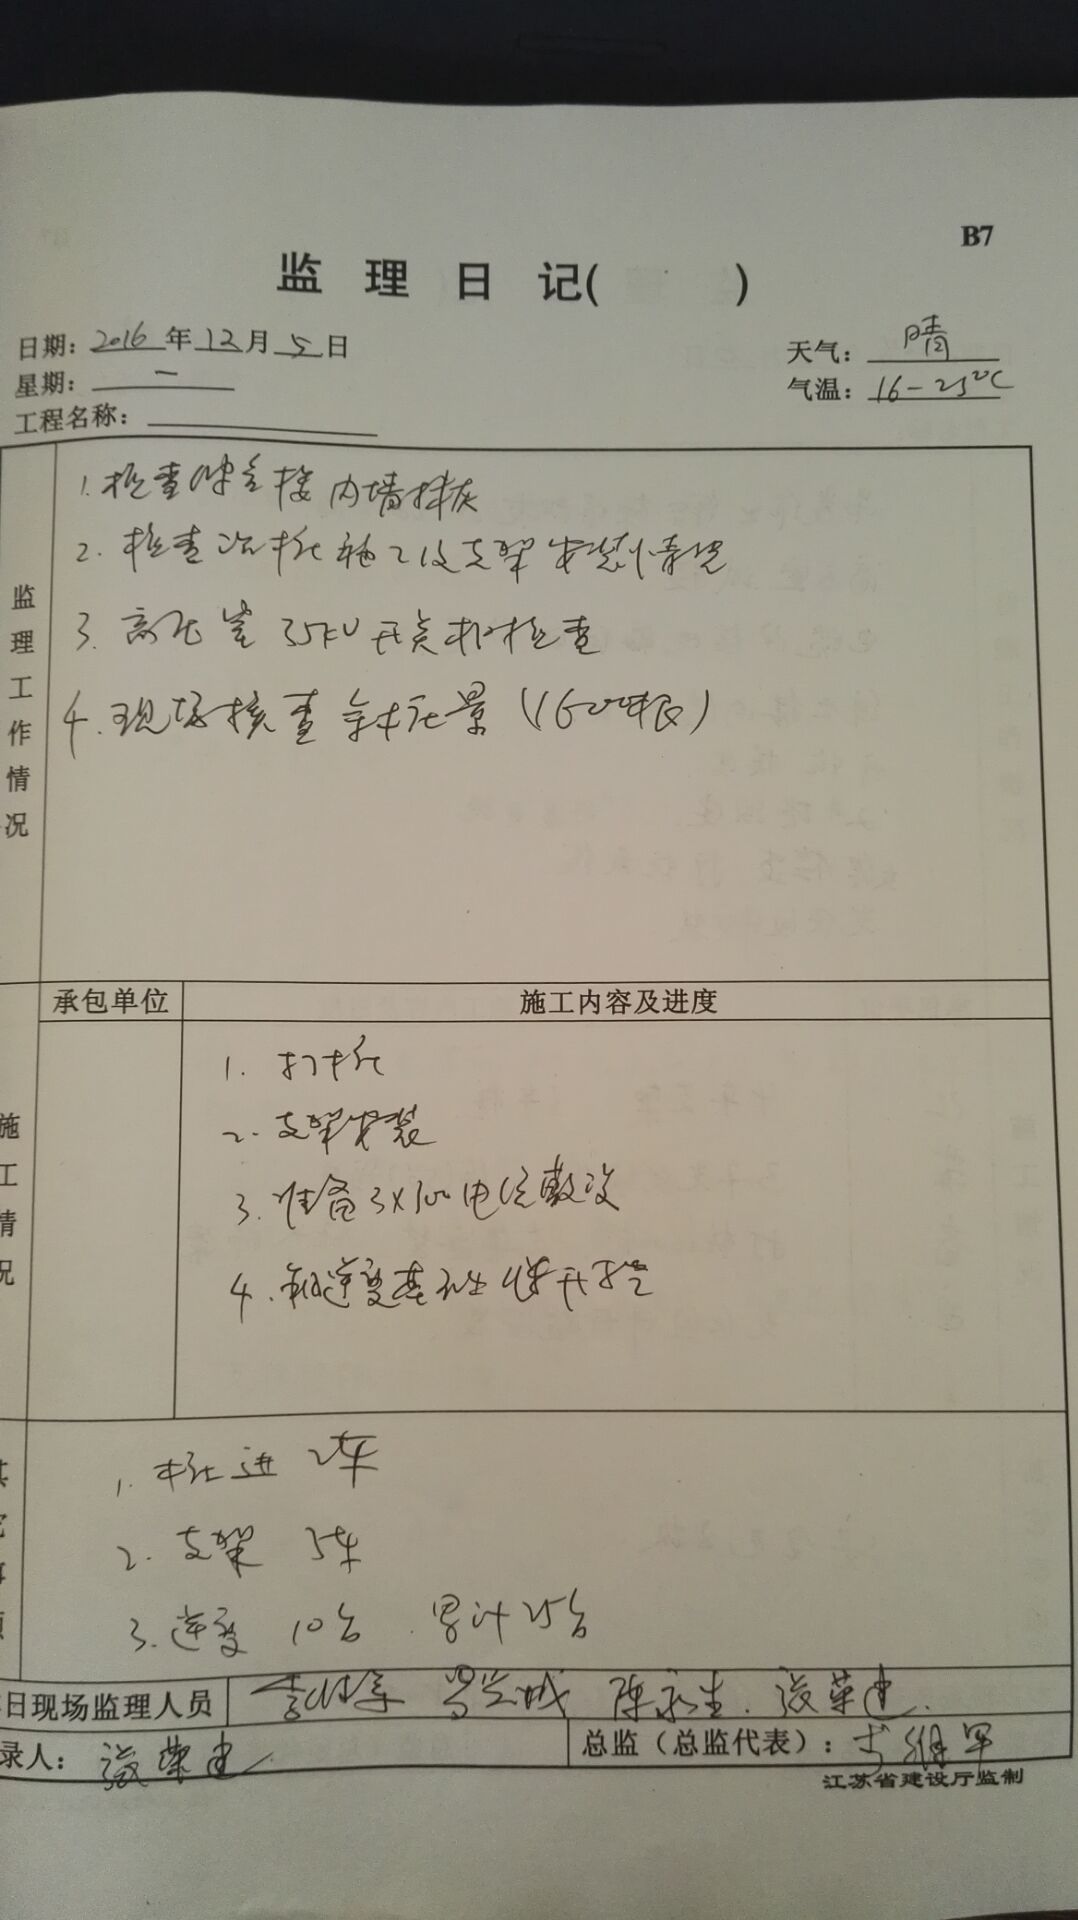 B7
监 理 日 记( )
日期: 2016 年 12 月 5 日
天气: 晴
星期: 一
气温: 16-25℃
工程名称:
监理工作情况
1.检查综合楼内墙抹灰
2.检查 桩 及支架安装情况
3.高压室35kV开关柜检查
4.现场核查余桩量(1600根)
承包单位
施工内容及进度
施工情况
1.打桩
2.支架安装
3.准备3×100电缆敷设
4.箱逆变基础 开挖
1.桩进2车
2.支架 5车
3.逆变 10台 累计25台
日现场监理人员
陈永生
录人:
总监(总监代表):
江苏省建设厅监制